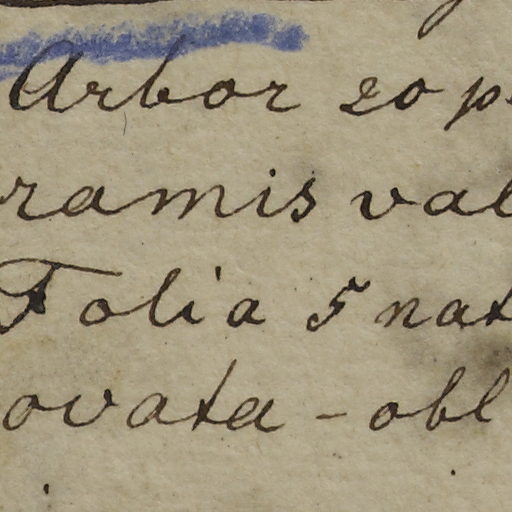 Arbor 20 p
ramis val
Folia 5 nat
ovata - obl